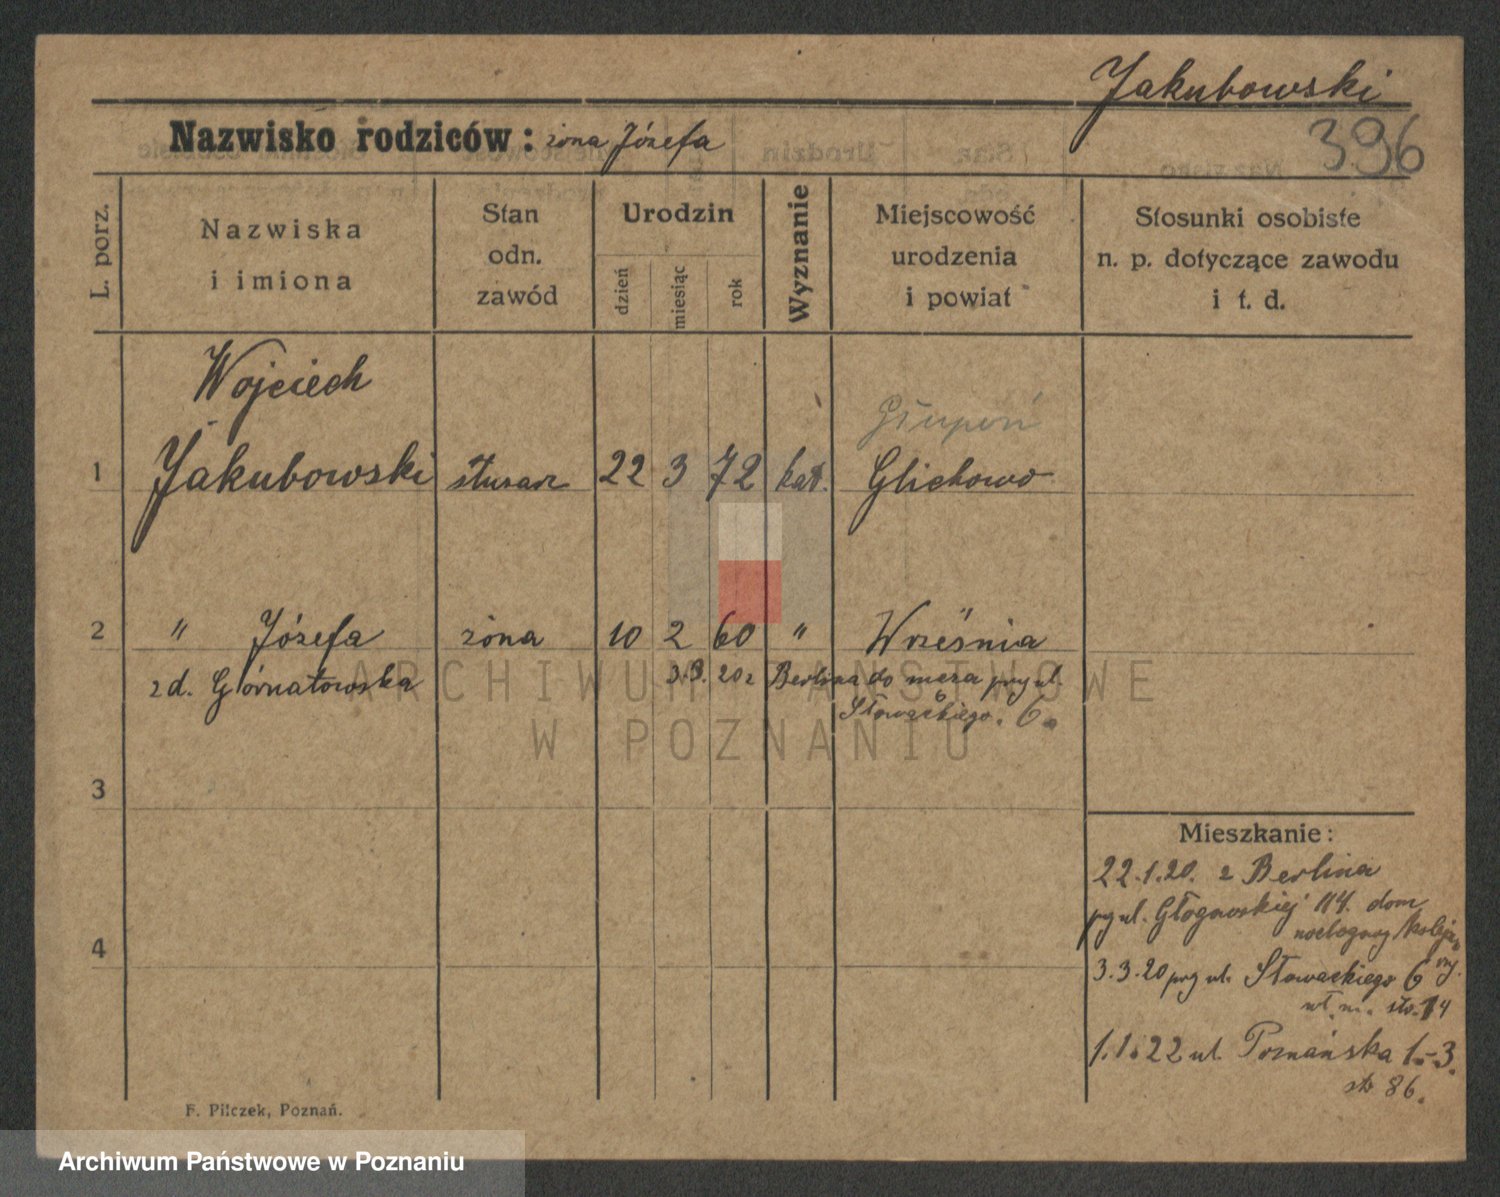 Jakubowski
396
Nazwisko rodziców: żona Józefa
L. porz.
Nazwiska
i imiona
Stan
odn.
zawód
Urodzin
dzień
miesiąc
rok
Wyznanie
Miejscowość
urodzenia
i powiat
Stosunki osobiste
n. p. dotyczące zawodu
i t. d.
Wojciech
1 Jakubowski 22 3 72 kat. Glichowo
2 " Józefa żona 10 2 60 " Września
zd. Górnatowska 3.3. 20 z Berlina do męża przy ul.
Słowackiego. 6.
3
4
Mieszkanie:
22.1.20. z Berlina
przy ul. Głogowskiej 114. dom
noclegowy
3.3.20 przy ul. Słowackiego 6
1.1.22 ul. Poznańska 1-3.
86.
F. Pilczek, Poznań.
ARCHIWUM PAŃSTWOWE
W POZNANIU
Archiwum Państwowe w Poznaniu